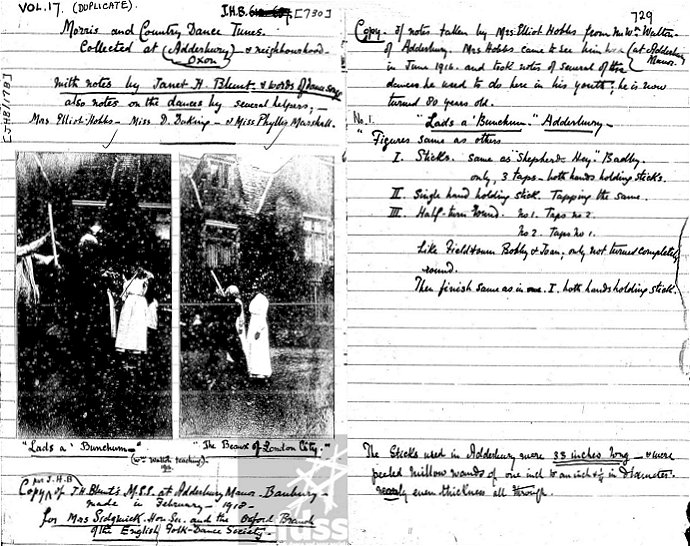 VOL. 17. (DUPLICATE).
J.H.B. [730]
Morris and Country Dance Tunes.
Collected at (Adderbury) & neighbourhood
Oxon
With notes by Janet H. Blunt & words of Dance Song
also notes on the dances by several helpers; —
Mrs Elliot Hobbs — Miss D. Daking — & Miss Phyllis Marshall.
[JHB/17B]
"Lads a' Bunchum"
(Wm Walton teaching)
1916.
"The Beaux of London City."
per J.H.B
Copy of J.H. Blunt's M.S.S. at Adderbury Manor. Banbury —
made in February — 1918 —
for Mrs Sidgwick. Hon. Sec. and the Oxford Branch
of the English Folk-Dance Society.
729
Copy — of notes taken by Mrs Elliot Hobbs from Mr Wm Walton
of Adderbury. Mrs Hobbs came to see him (at Adderbury
Manor.
in June 1916. and took notes of several of the
dances he used to do here in his youth; he is now
turned 80 years old.
No. 1. "Lads a' Bunchum." Adderbury —
"Figures same as others
I. Sticks. same as "Shepherd's Hey." Badby.
only, 3 taps — both hands holding sticks.
II. Single hand holding stick. Tapping the same.
III. Half-turn round. No 1. Taps no 2.
No 2. Taps no 1.
Like Fieldtown Bobby & Joan; only not turned completely
round.
Then finish same as in one. I. both hands holding stick.
The Sticks used in Adderbury were 33 inches long — & were
peeled Willow wands of one inch to an inch & ½ in Diameter
nearly even thickness all through.